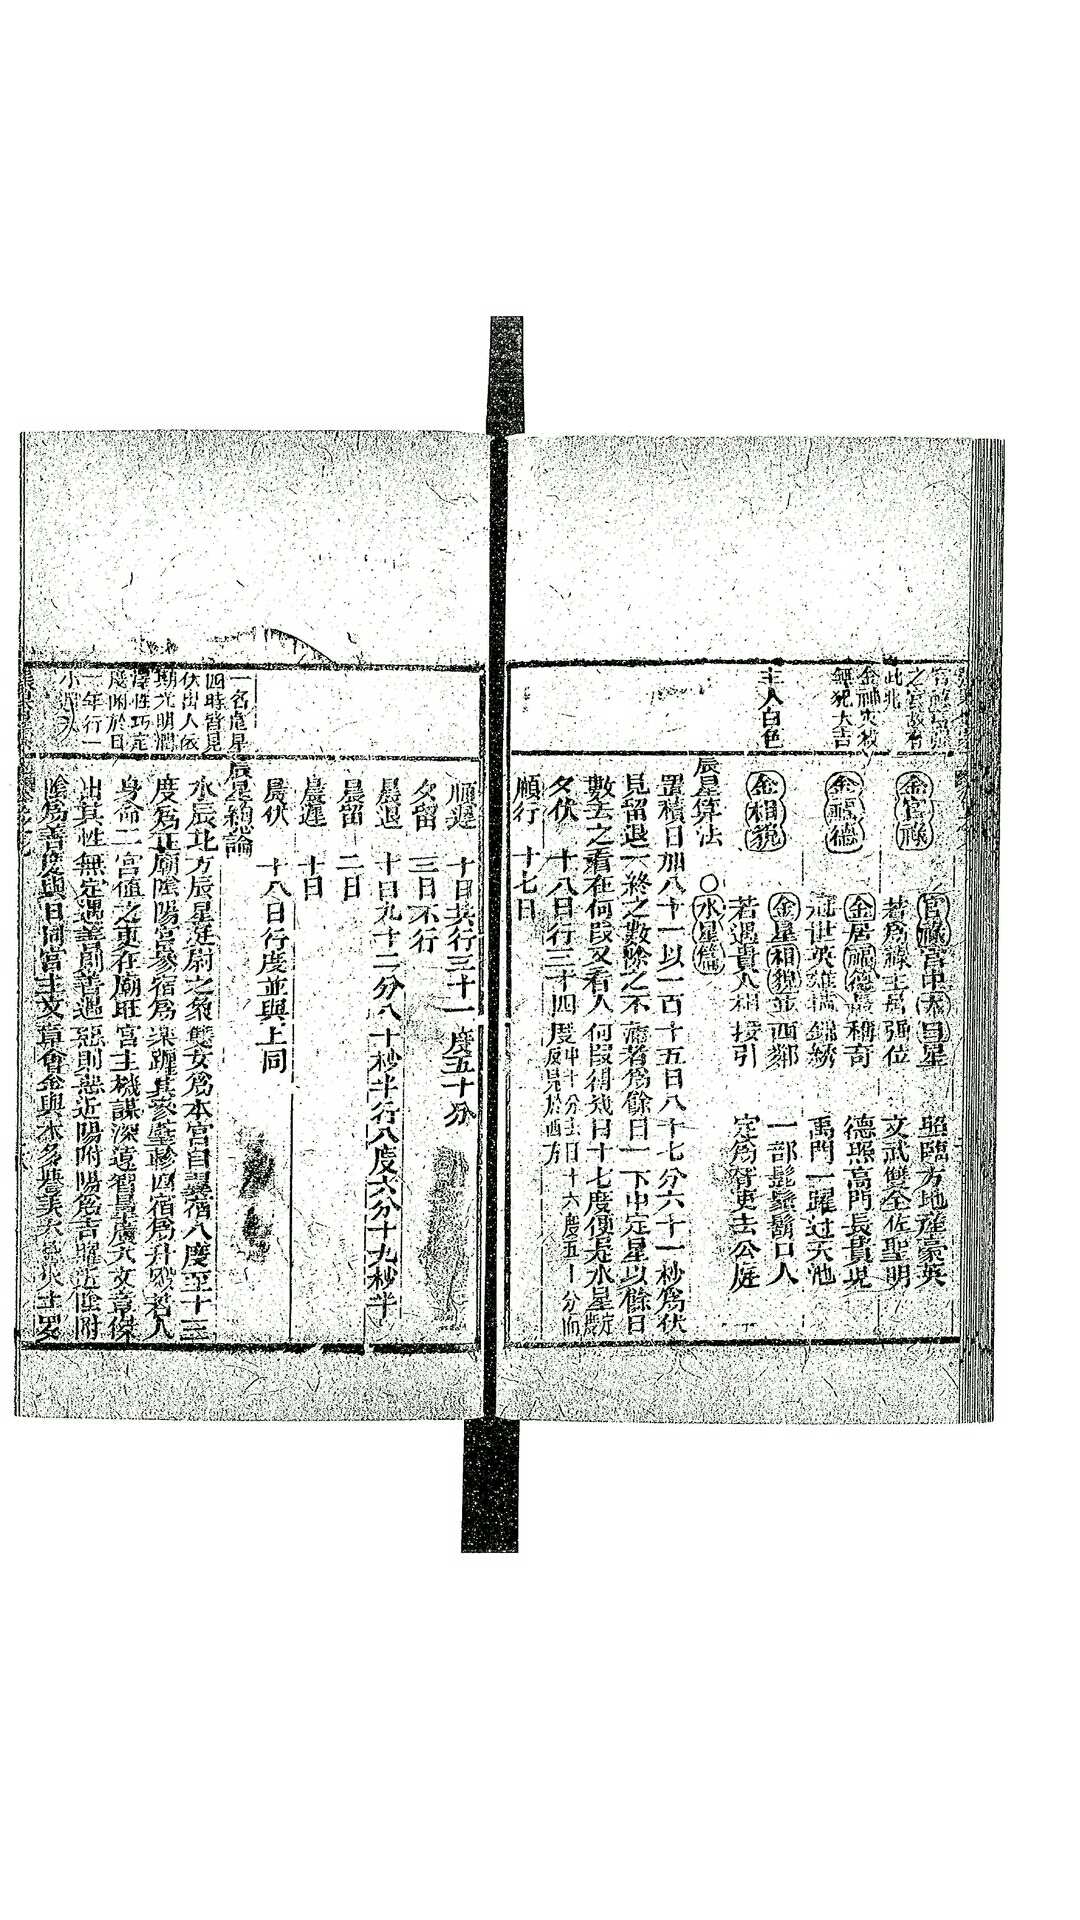 金官祿
官祿宮中太白星　照臨方地產豪英
若為祿主居強位　文武雙全佐聖明
金福德
金居福德最稱奇　德照高門長貴兒
冠世英雄　錦綉　禹門一躍过天池
主人白色
金相貌
金星相貌並西鄰　一部髭鬚鬍口人
若遇貴人相接引　定為胥吏去公庭
○水星篇
辰星算法
置積日加八十一以一百一十五日八十七分六十一秒為伏
見留退一終之數除之不滿者為餘日一下中定星以餘日
數去之看在何段又看入何段得幾日十七度便是水星
夕伏　十八日行三十四度
順行　十七日
順遲　十日共行三十一度五十分
夕留　三日不行
晨退　十日九十二分八十秒半行八度六分十九秒半
晨留　二日
晨遲　十日
晨伏　十八日行度並與上同
辰星總論
一名處星
四時皆見
伏出人依
期光明潤
澤性巧定
度附於日
一年行一
水辰北方辰星廷尉之象雙女為本宮自翼宿八度至十三
度為正廟陰陽宮參宿為樂躔其參壁軫四宿為升殿若入
身命二宮值之更在廟旺宮主機謀深遠智量廣大文章傑
出其性無定遇善則善遇惡則惡近陽附陽為吉曜近陰附
陰為善度與日同宮主文章會金與木多豐美